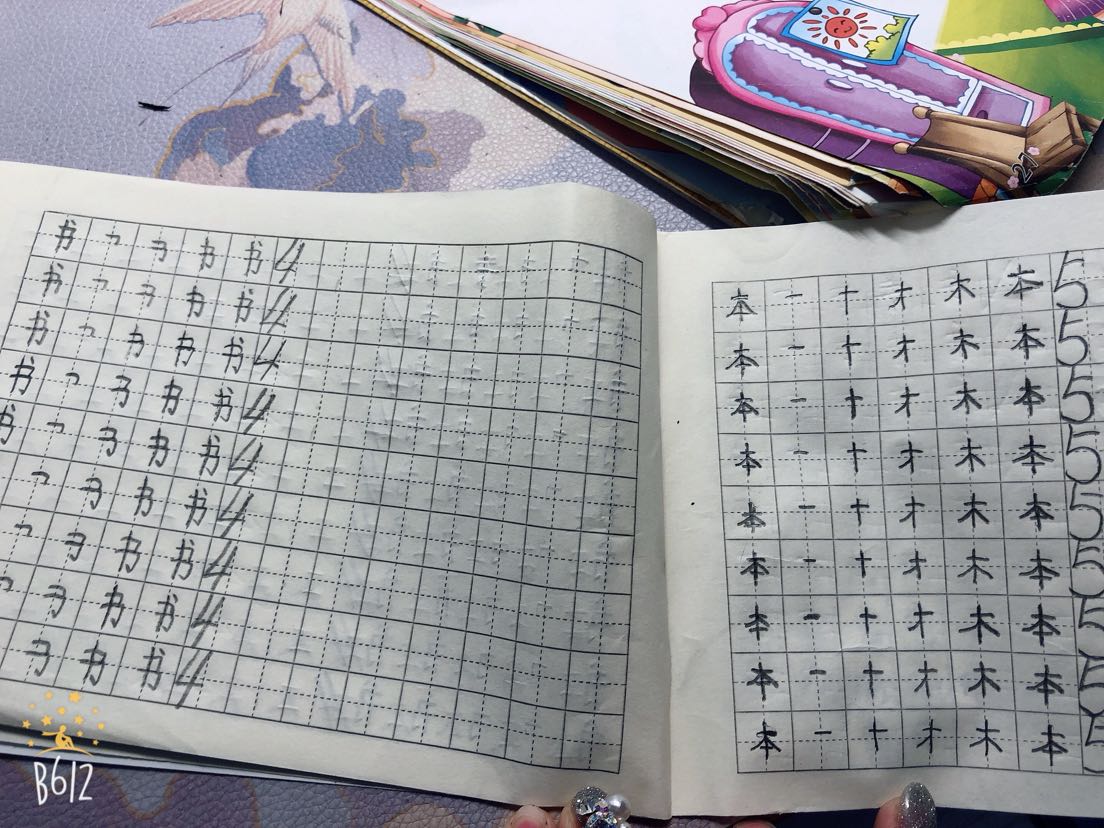 27
书 ㇕ 书 4
书 ㇕ 书 4
书 ㇕ 书 4
书 ㇕ 书 4
书 ㇕ 书 4
㇕ 书 4
㇕ 书 4
㇕ 书 4
书 4
本 一 十 才 木 本 5
本 一 十 才 木 本 5
本 一 十 才 木 本 5
本 一 十 才 木 本 5
本 一 十 才 木 本 5
本 一 十 才 木 本 5
本 一 十 才 木 本 5
本 一 十 才 木 本 5
本 一 十 才 木 本 5
B612